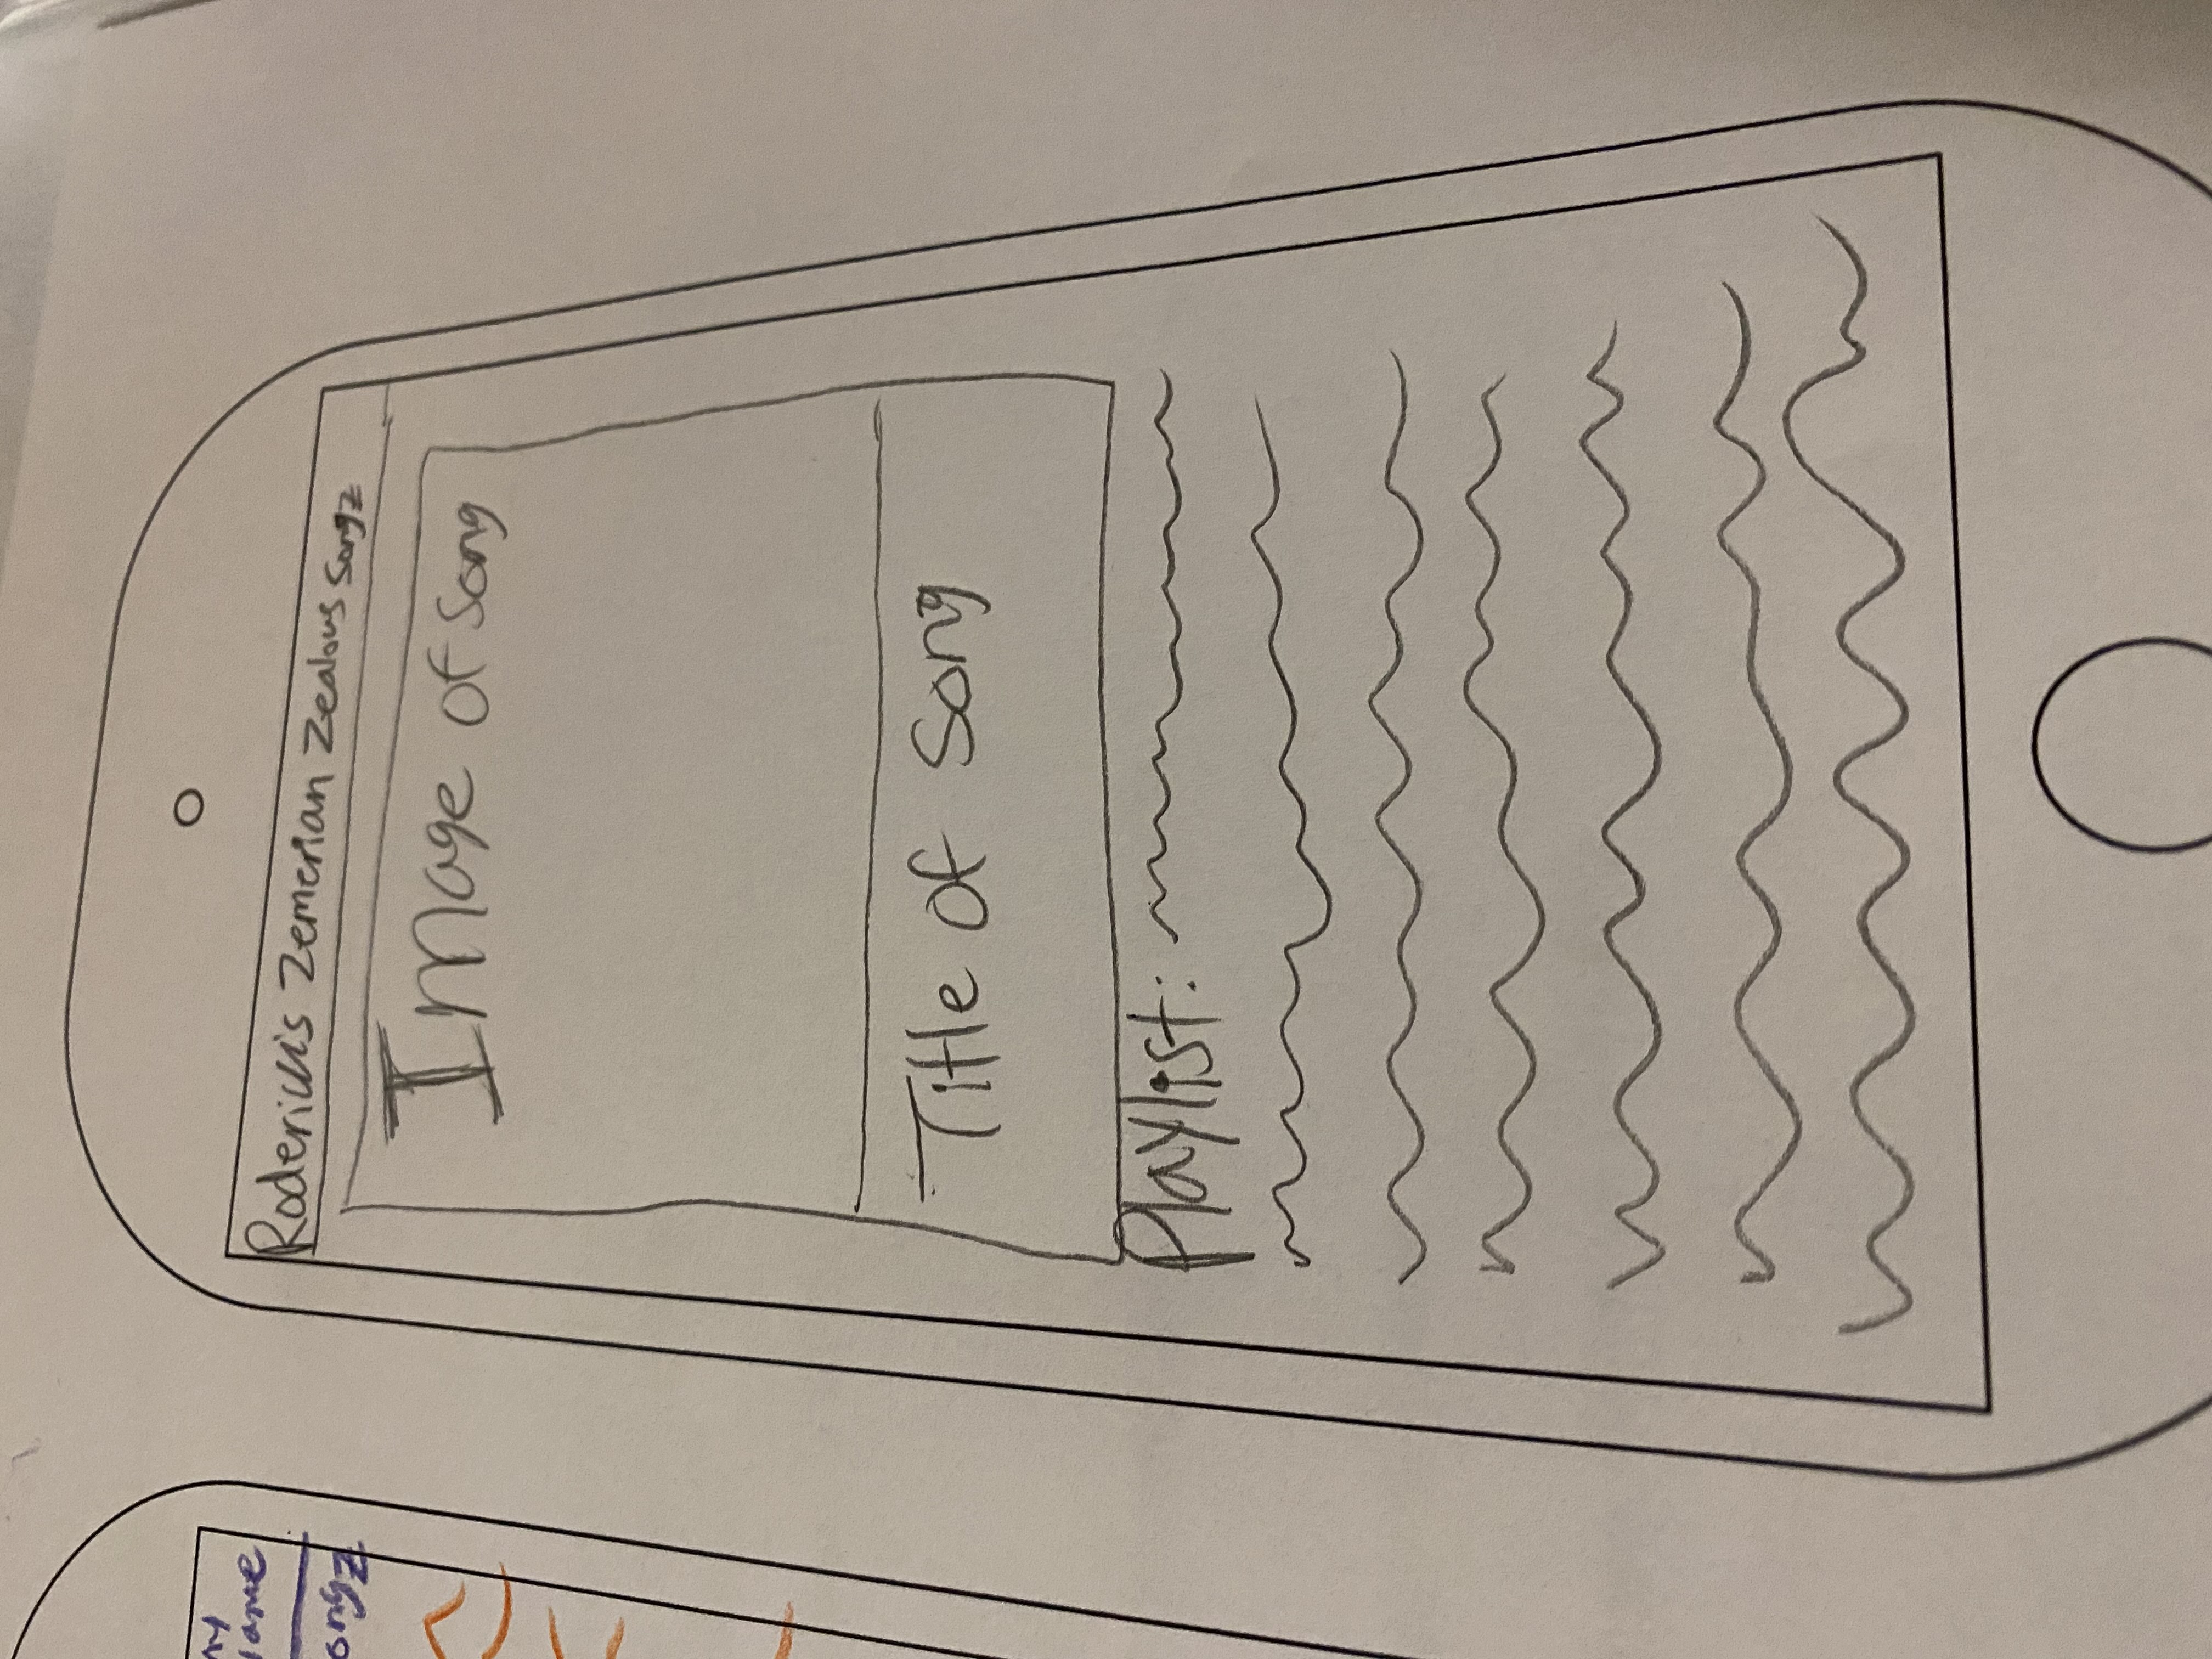 ny
lame
ongz
Roderick's Zemerian Zealous Songz
Image of Song
Title of Song
Playlist: